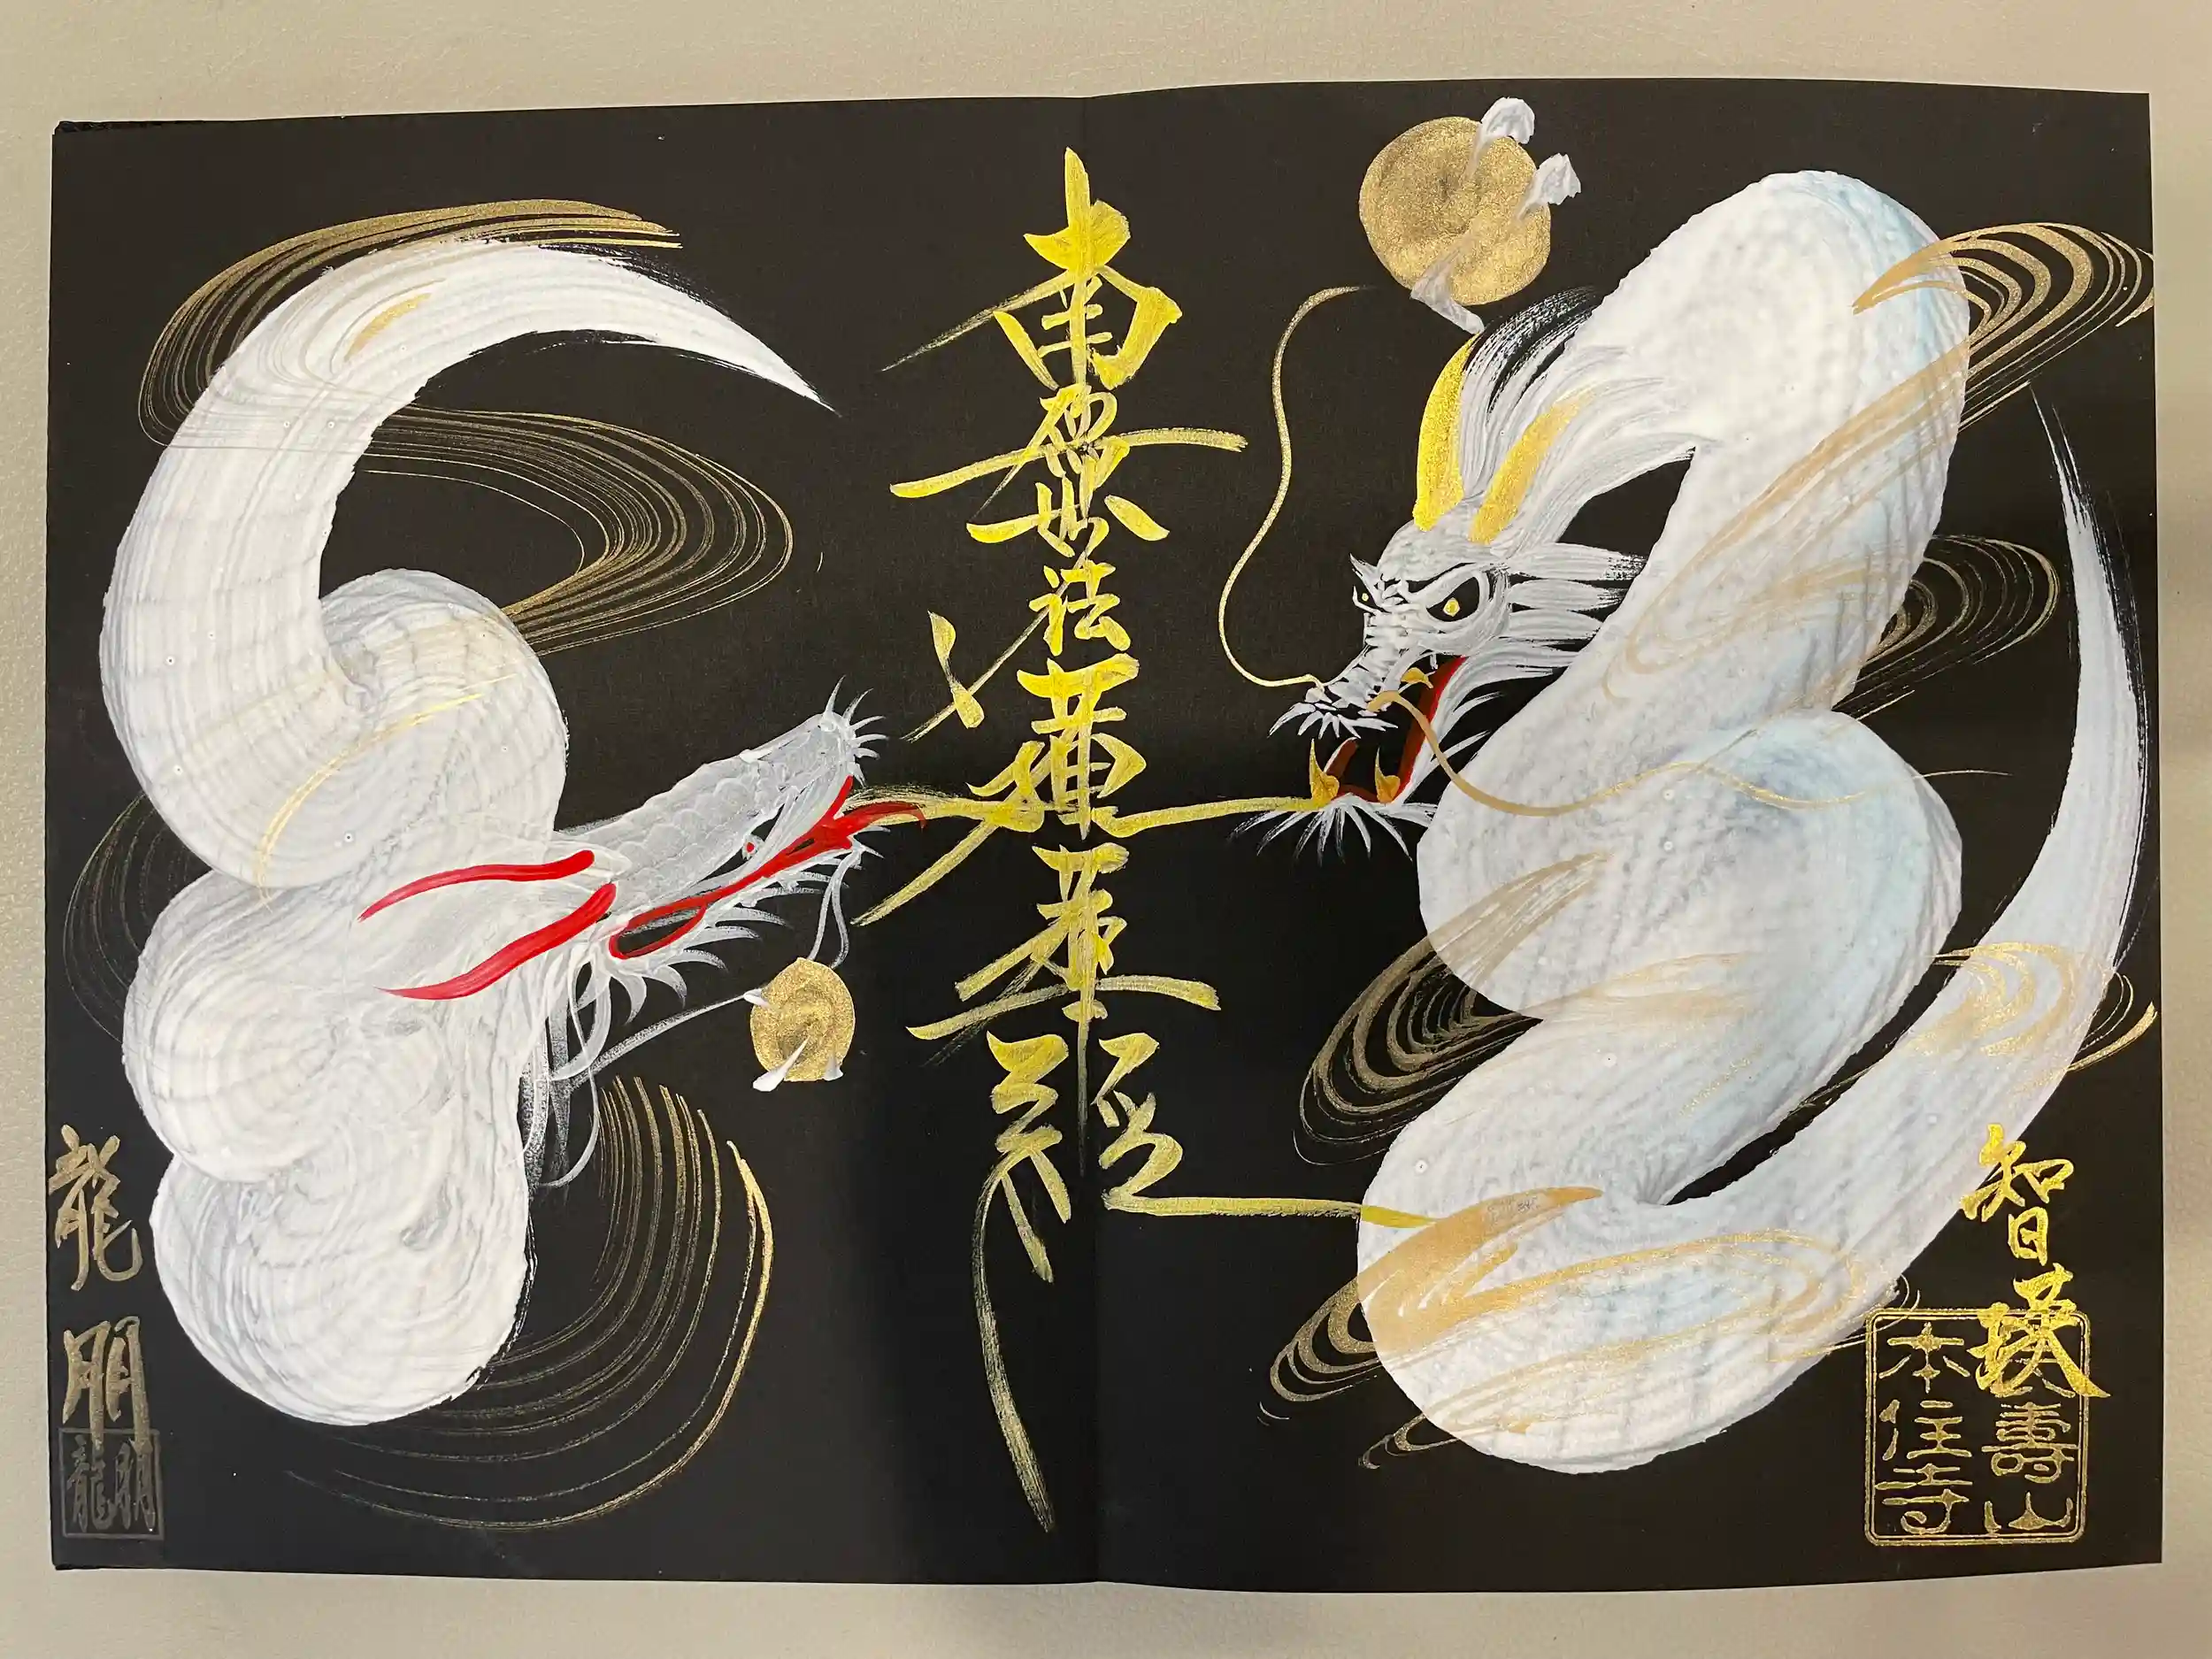 南無妙法蓮華経
智瑛
壽山
本住寺
龍朋
龍朋